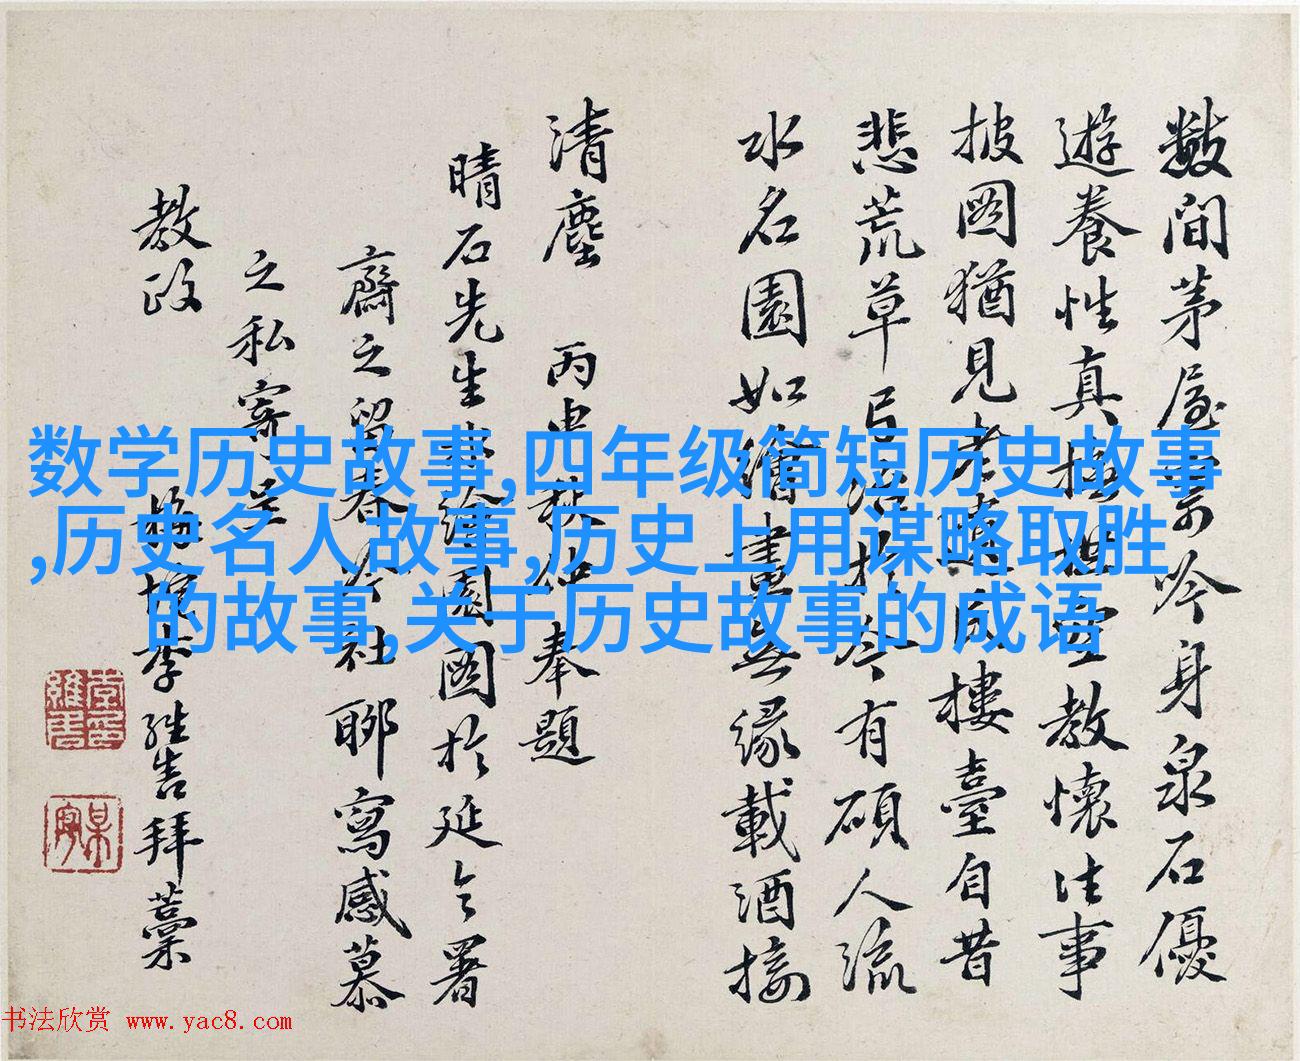 數間茅屋寄吟身泉石優
遊養性真極樸聖教懷往事
披圖猶見樓臺自昔
悲荒草今有碩人流
水名園如繪畫無緣載酒接
清塵 丙 秋仲奉題
晴石先生繪園圖於延令署
齋之留春社聊寫感慕
之私寄呈
教政
李 拜藁
数学历史故事,四年级简短历史故事
,历史名人故事,历史上用谋略取胜
的故事,关于历史故事的成语
书法欣赏 www.yac8.com